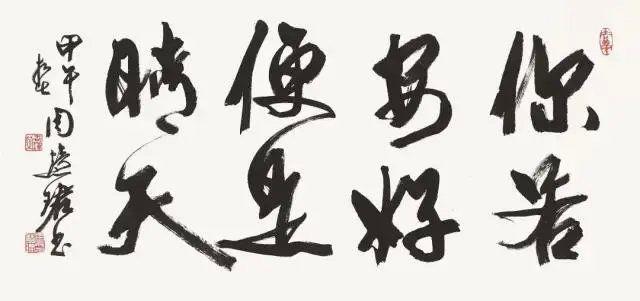 你若
安好
便是
晴天
甲午
周慧珺书